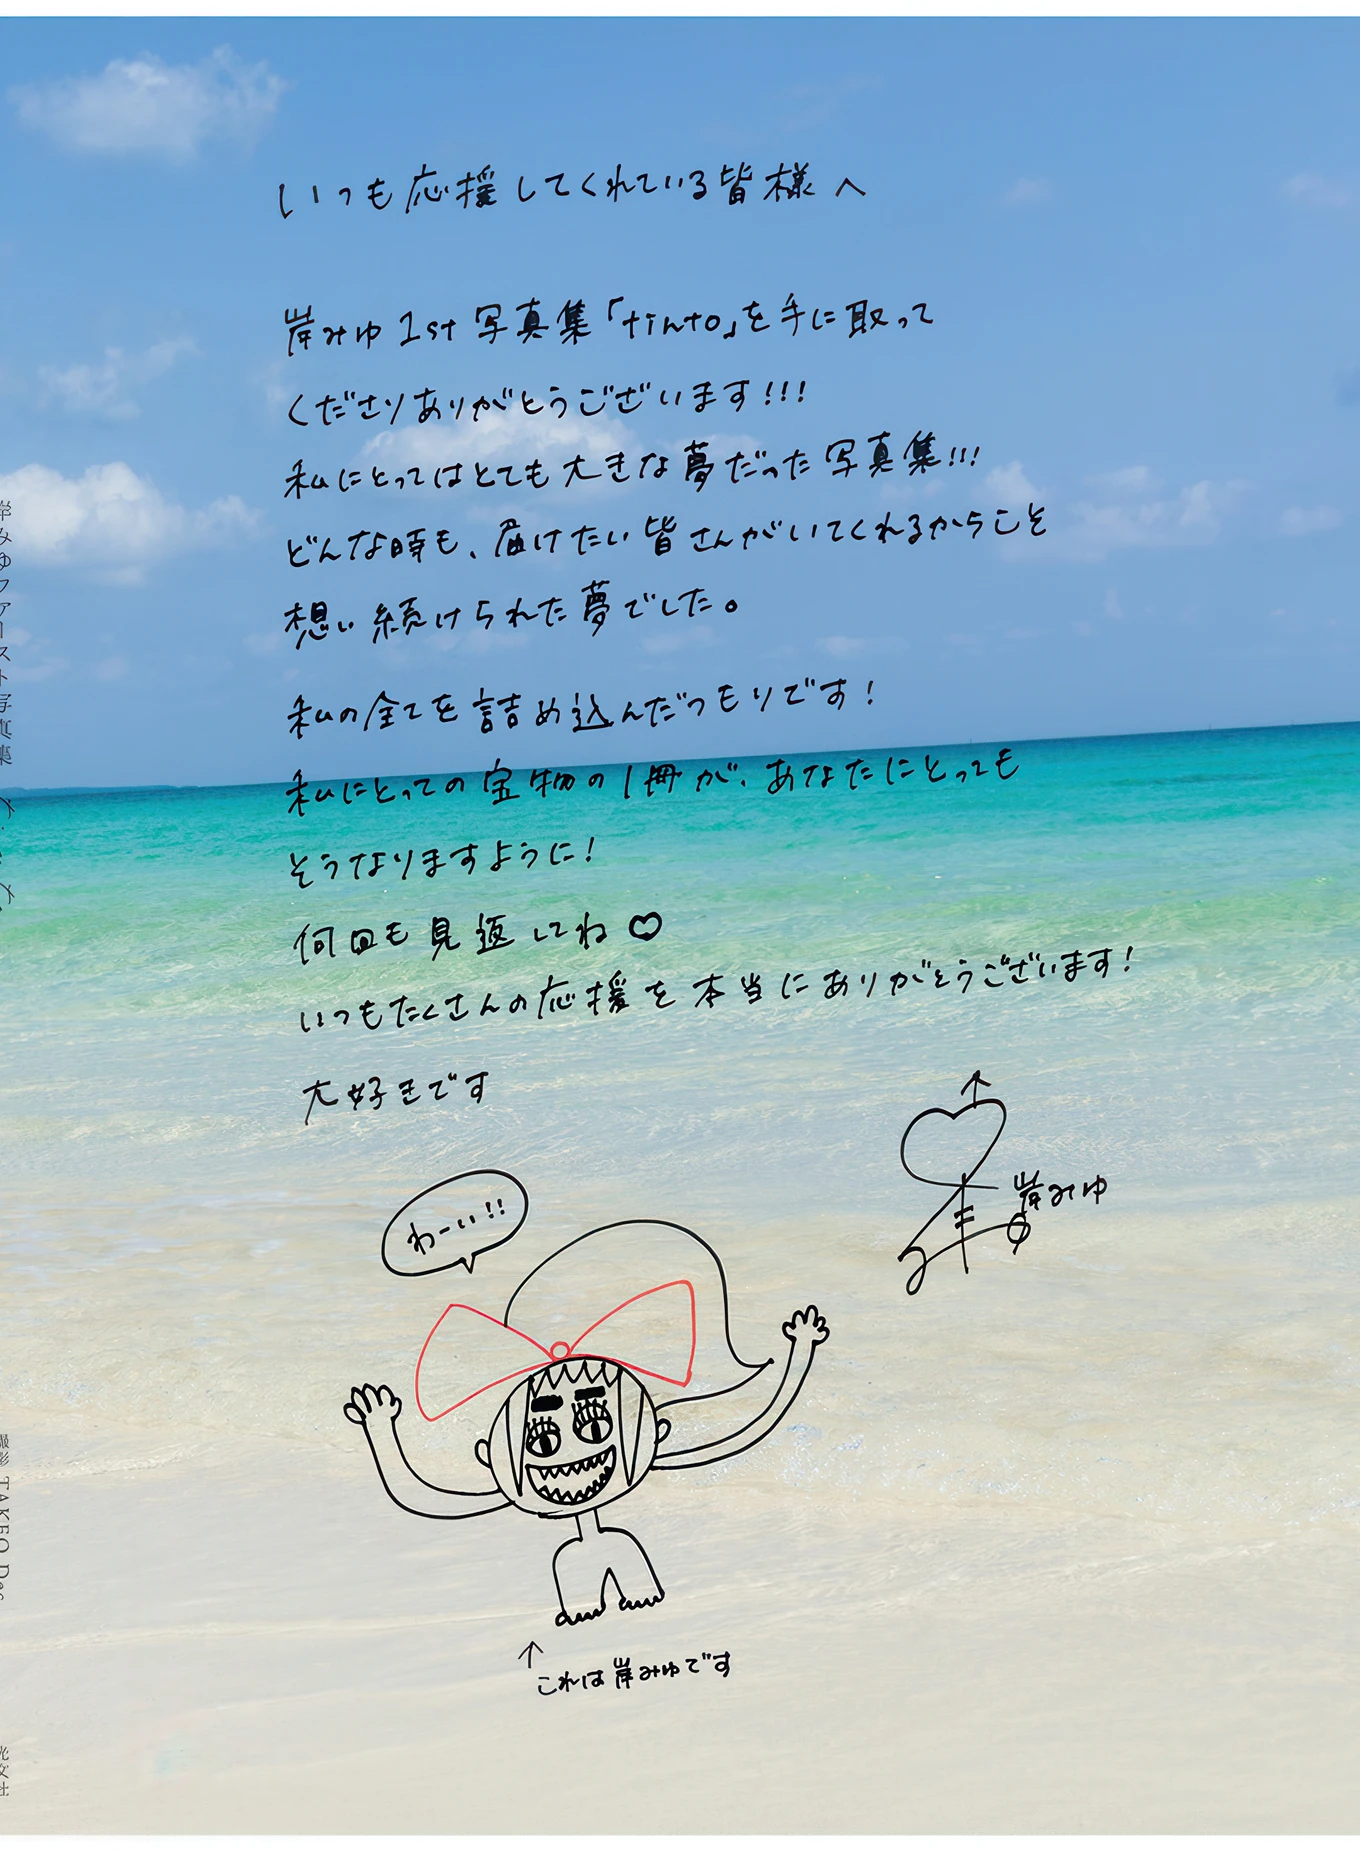 いつも応援してくれている皆様へ
岸みゆ1st写真集「tinto」を手に取って
くださりありがとうございます!!!
私にとってはとても大きな夢だった写真集!!!
どんな時も、届けたい皆さんがいてくれるからこそ
想い続けられた夢でした。
私の全てを詰め込んだつもりです!
私にとっての宝物の1冊が、あなたにとっても
そうなりますように!
何回も見返してね♡
いつもたくさんの応援を本当にありがとうございます!
大好きです
岸みゆ
わーい!!
↑これは岸みゆです
岸みゆファースト写真集
撮影 TAKEO Dec.
光文社